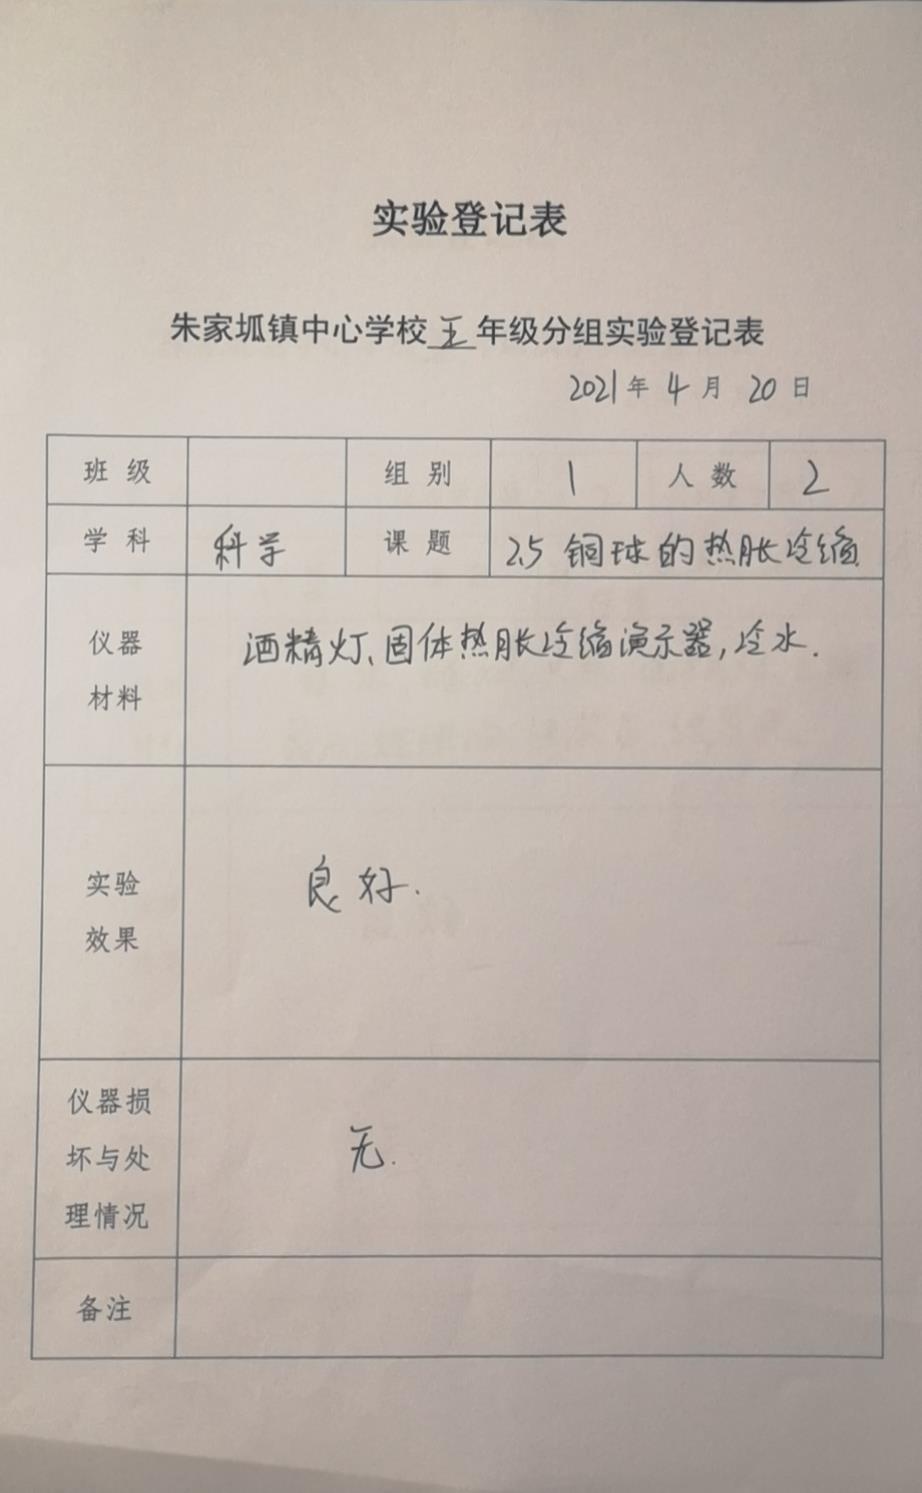 实验登记表
朱家坬镇中心学校五年级分组实验登记表
2021年4月20日
班级 组别 1 人数 2
学科 科学 课题 2.5 铜球的热胀冷缩
仪器
材料
酒精灯、固体热胀冷缩演示器,冷水.
实验
效果
良好.
仪器损
坏与处
理情况
无.
备注